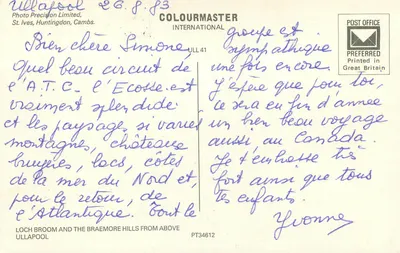 Ullapool 26.8.83
Photo Precision Limited,
St. Ives, Huntingdon, Cambs.
COLOURMASTER
INTERNATIONAL
ULL 41
POST OFFICE
PREFERRED
Printed in
Great Britain
Bien chère Simone,
Quel beau circuit de
l'A.T.C. L'Ecosse est
vraiment splendide
et les paysages si variés
montagnes, châteaux
bruyères, lacs, côtes
de la mer du Nord et,
pour le retour, de
l'Atlantique. Tout le
groupe est
sympathique
une fois encore.
J'espère que pour toi,
ce sera en fin d'année
un bien beau voyage
aussi, au Canada.
Je t'embrasse très
fort ainsi que tous
tes enfants.
Yvonne
LOCH BROOM AND THE BRAEMORE HILLS FROM ABOVE
ULLAPOOL
PT34612